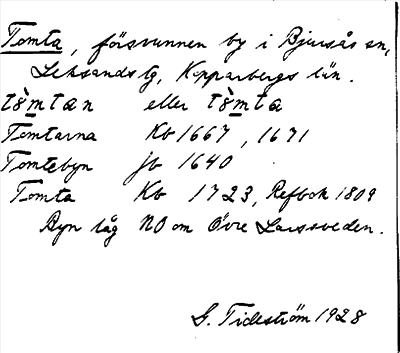 Tomta, försvunnen by i Bjursås sn,
Leksands tg, Kopparbergs län.
tòmtan eller tòmta
Tomtarna Kb 1667, 1671
Tomtebyn jb 1640
Tomta Kb 1723, Refbok 1809
Byn låg NO om Övre Larssveden.
G. Tideström 1928